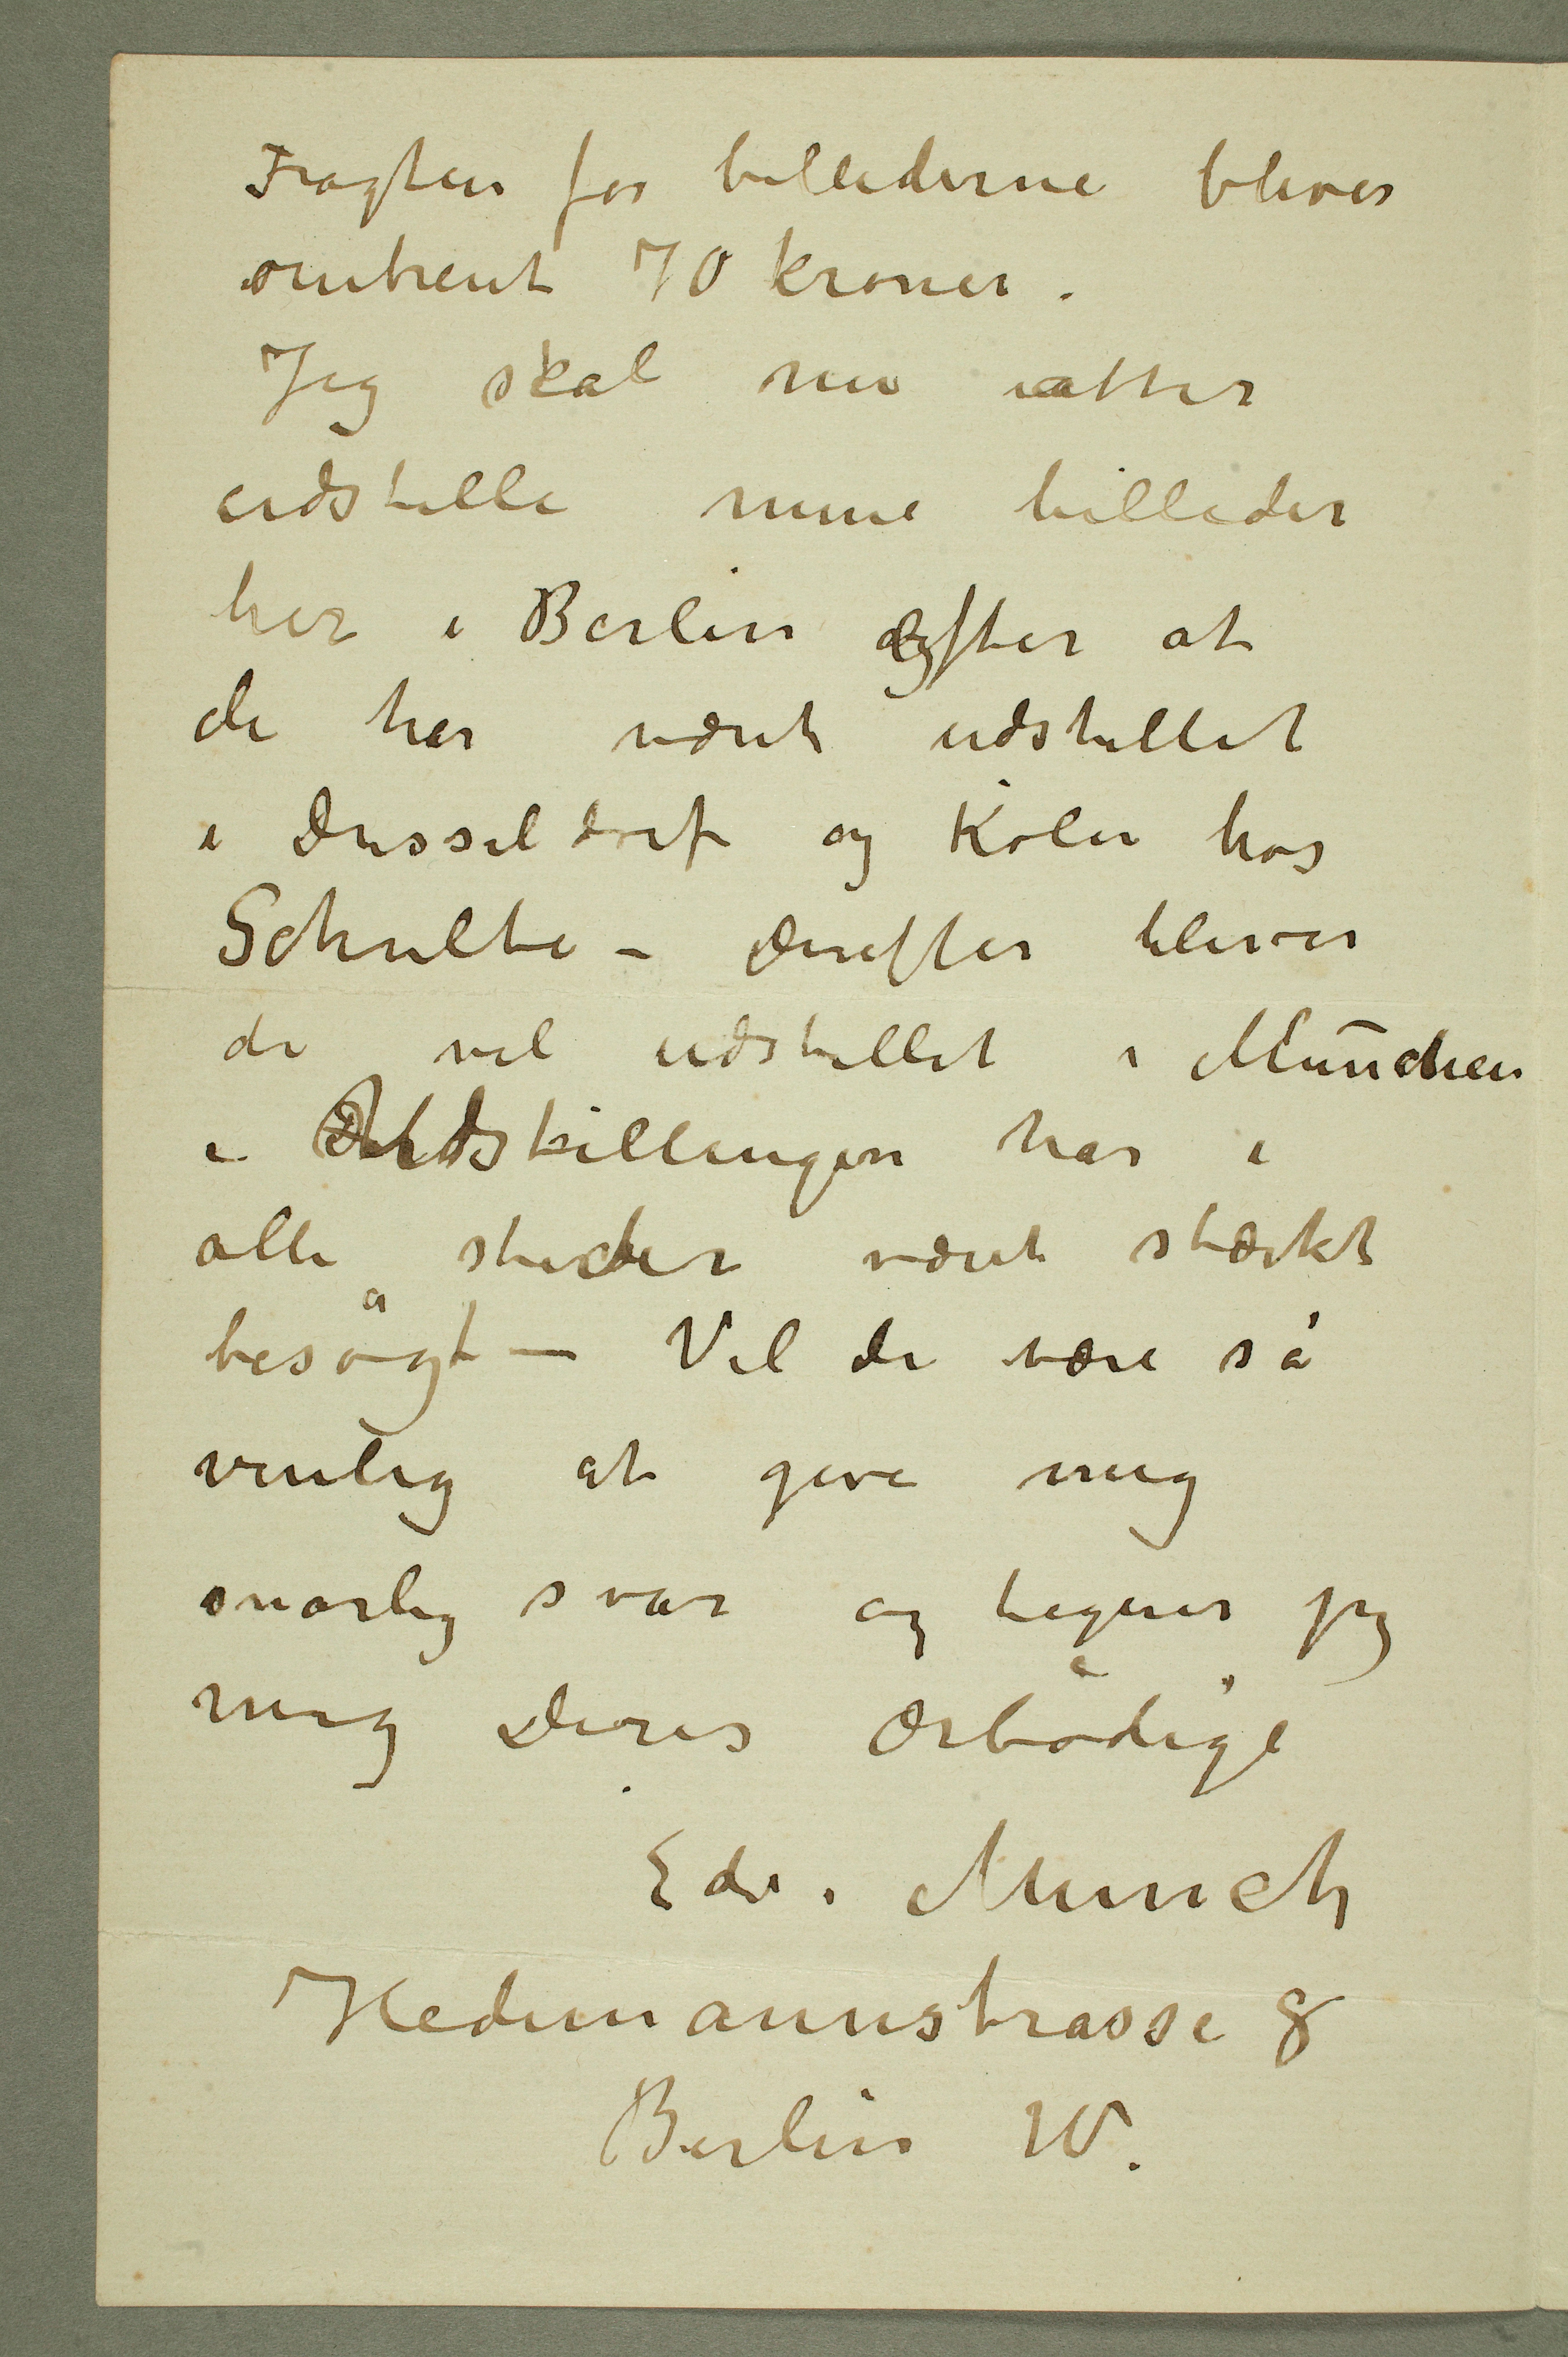 Fragten for billederne bliver
omtrent 70 kroner.
Jeg skal nu atter
udstille mine billeder
her i Berlin efter at
de har været udstillet
i Dusseldorf og Köln hos
Schulte – Derefter bliver
de vel udstillet i München
i Udstillingen har i
alle steder været stærkt
besögt – Vil De være så
venlig at give mig
snarlig svar og tegner jeg
mig Deres ærbödige
Edv. Munch
Hedemannstrasse 8
Berlin W.